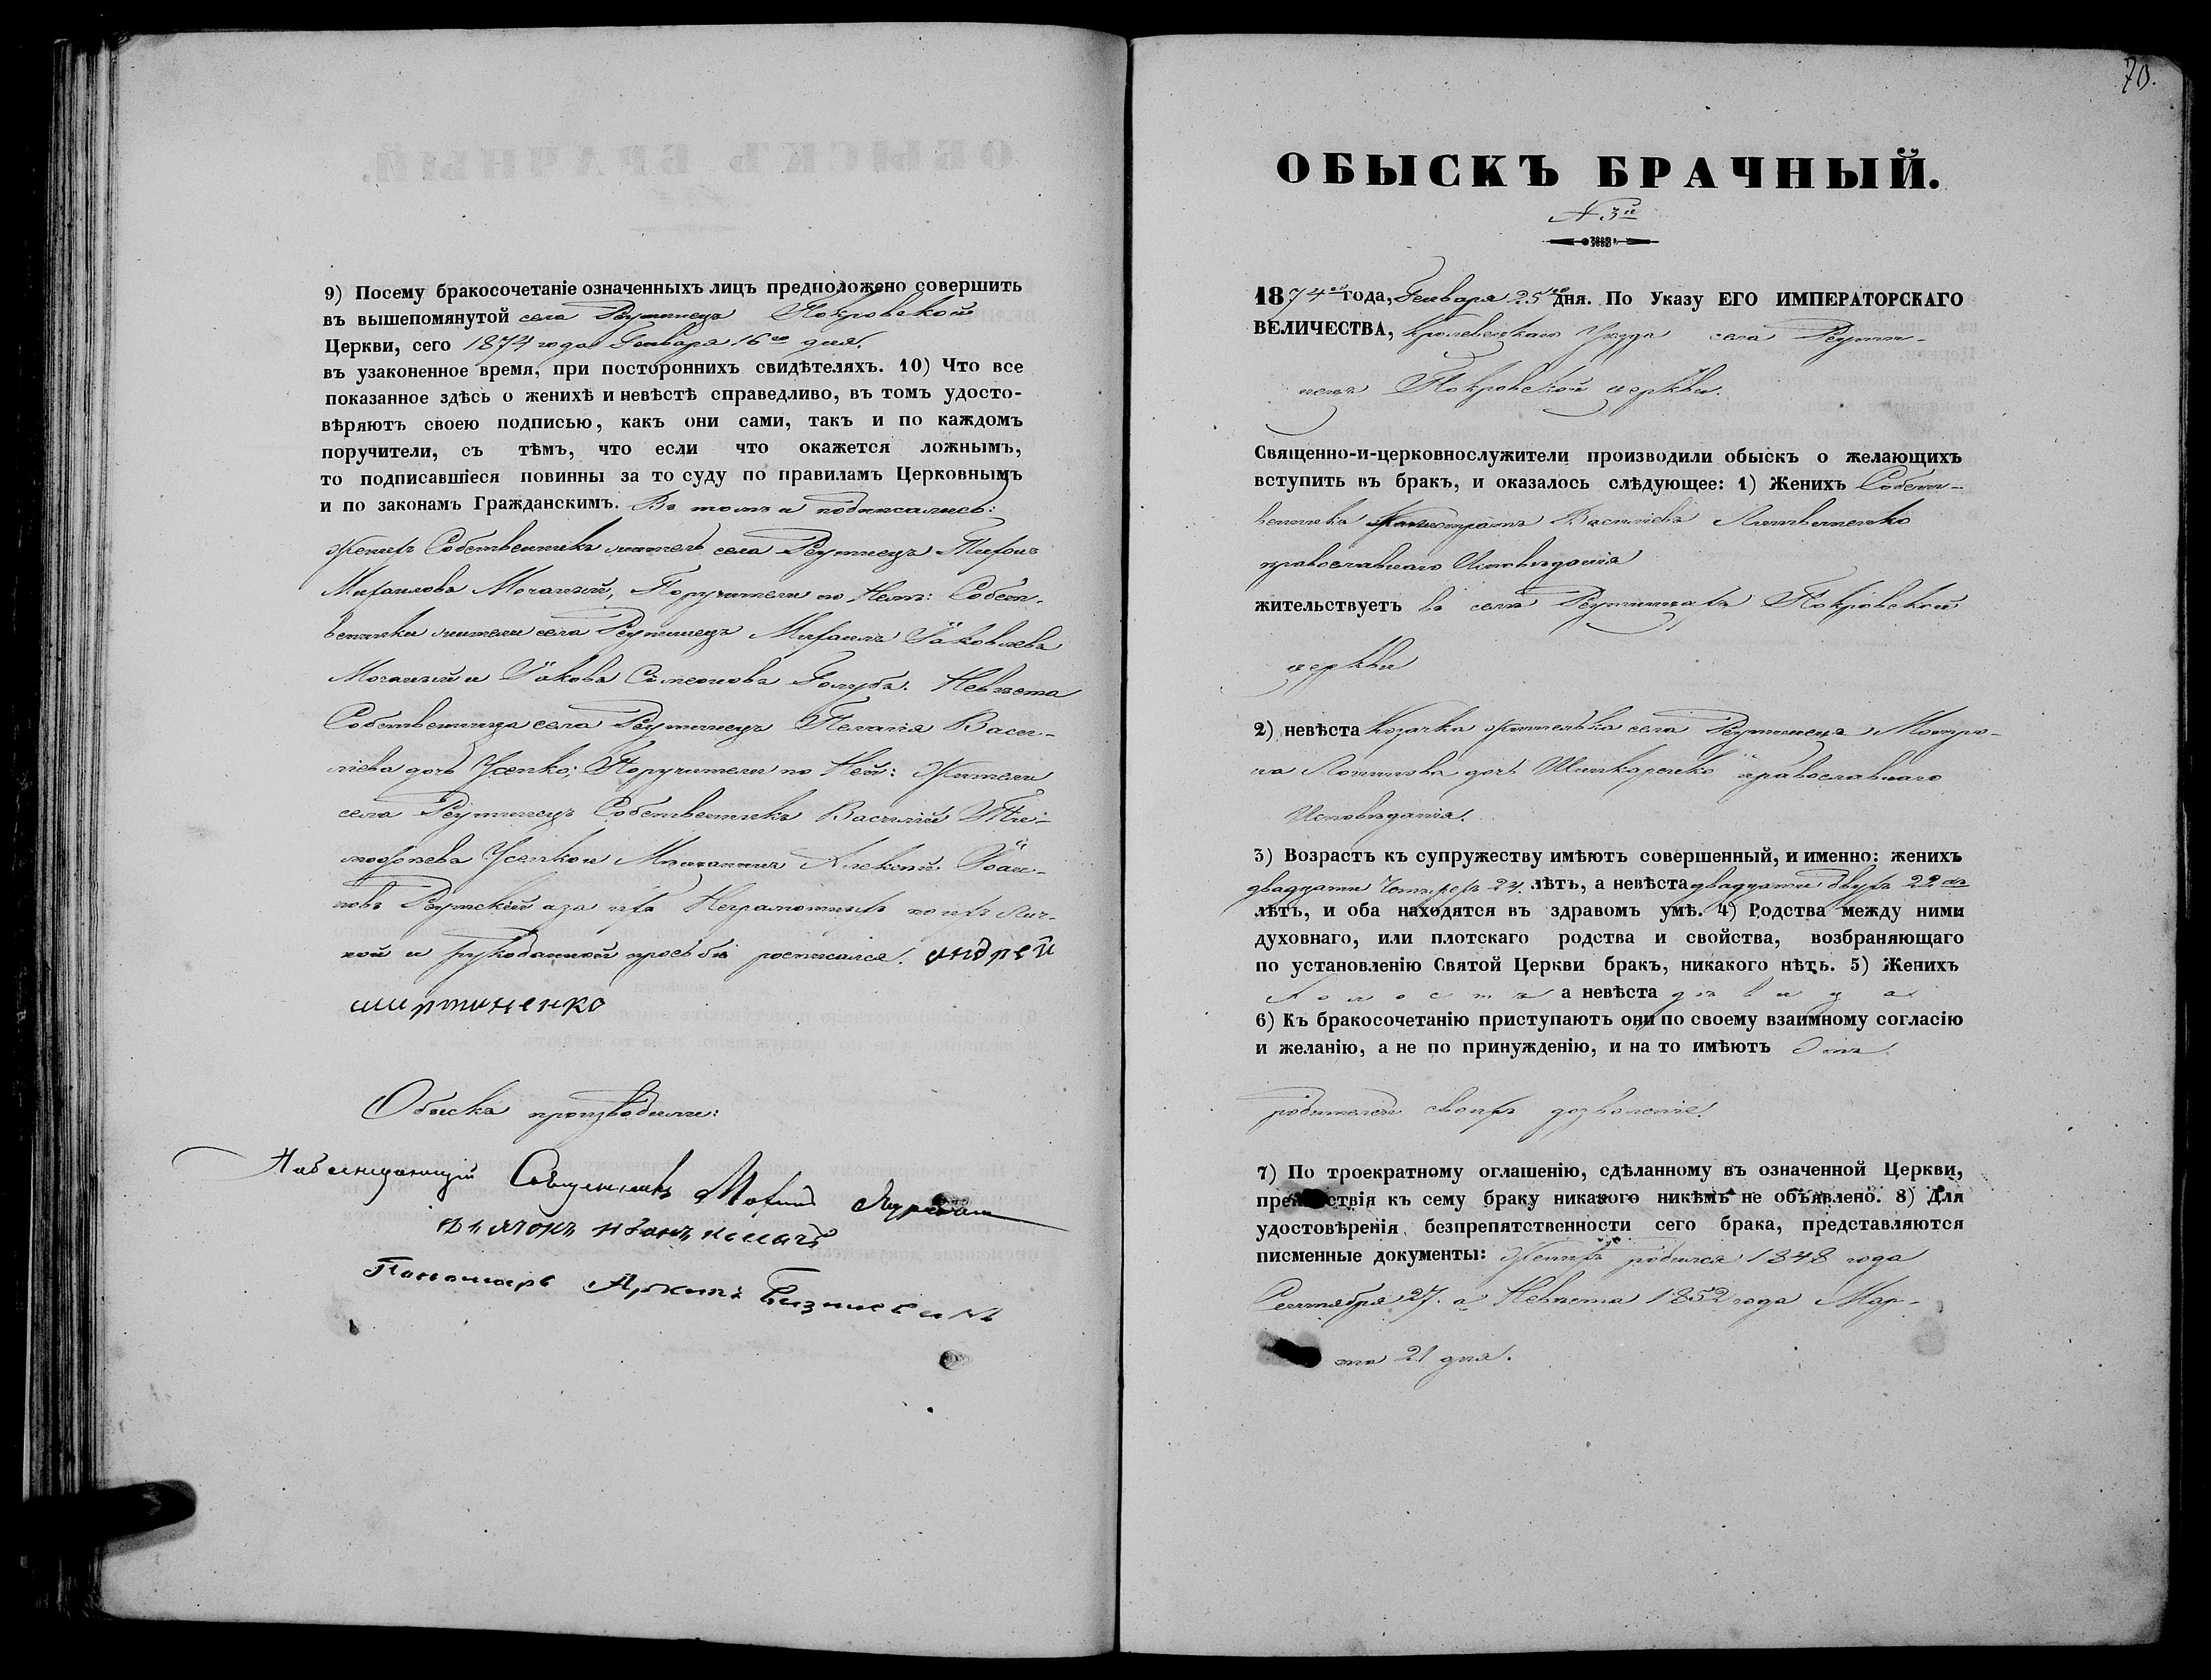 9) Посему бракосочетаніе означенныхъ лицъ предположено совершить
въ вышепомянутой села Реутинецъ Покровской
Церкви, сего 1874 года Генваря 16го дня.
въ узаконенное время, при постороннихъ свидѣтеляхъ. 10) Что все
показанное здѣсь о женихѣ и невѣстѣ справедливо, въ томъ удосто-
вѣряютъ своею подписью, какъ они сами, такъ и по каждомъ
поручители, съ тѣмъ, что если что окажется ложнымъ,
то подписавшіеся повинны за то суду по правиламъ Церковнымъ
и по законамъ Гражданскимъ. Въ томъ и подписались:
Женихъ Собственникъ житель села Реутинецъ Тифонъ
Михаиловъ Мочаный, Поручители по Немъ: Собст-
венники жители села Реутинецъ Михаилъ Яковлевъ
Мочаный и Яковъ Симеоновъ Голубъ. Невѣста
Собственница села Реутинецъ Пелагія Васи-
ліева дочь Усенко; Поручители по Ней: Жители
села Реутинецъ Собственникъ Василій Ти-
мофѣевъ Усенко и Мѣщанинъ Алексѣй Іоан-
новъ Реутскій а за ихъ Неграмотныхъ по ихъ Лич-
ной и рукоданной прозьбѣ росписался. андрей
мартиненко
Обыскъ производили:
Наблюдающій Священникъ
дьячокъ иванъ
Пономарь
70.
ОБЫСКЪ БРАЧНЫЙ.
N 3й
1874го года, Генваря 25го дня. По Указу ЕГО ИМПЕРАТОРСКАГО
ВЕЛИЧЕСТВА, Кролевецкаго Уѣзда села Реути-
нецъ Покровской церкви.
Священно-и-церковнослужители производили обыскъ о желающихъ
вступить въ бракъ, и оказалось слѣдующее: 1) Женихъ Собст-
венникъ Калистратъ Василіевъ Литвиненко
православнаго Исповѣданія
жительствуетъ въ селѣ Реутинцахъ Покровской
церкви
2) невѣста Козачка жителька села Реутинецъ Мотро-
на Логинова дочь Шинкаренко православнаго
Исповѣданія.
3) Возрастъ къ супружеству имѣютъ совершенный, и именно: женихъ
двадцати Четырехъ 24. лѣтъ, а невѣста двадцати двухъ 22хъ
лѣтъ, и оба находятся въ здравомъ умѣ. 4) Родства между ними
духовнаго, или плотскаго родства и свойства, возбраняющаго
по установленію Святой Церкви бракъ, никакого нѣтъ. 5) Женихъ
холостъ а невѣста дѣвица
6) Къ бракосочетанію приступаютъ они по своему взаимному согласію
и желанію, а не по принужденію, и на то имѣютъ Отъ
родителей своихъ дозволеніе.
7) По троекратному оглашенію, сдѣланному въ означенной Церкви,
препятствія къ сему браку никакого никѣмъ не объявлено. 8) Для
удостовѣренія безпрепятственности сего брака, представляются
писменные документы: Женихъ родился 1848 года
Сентября 27. а Невѣста 1852 года Мар-
та 21 дня.